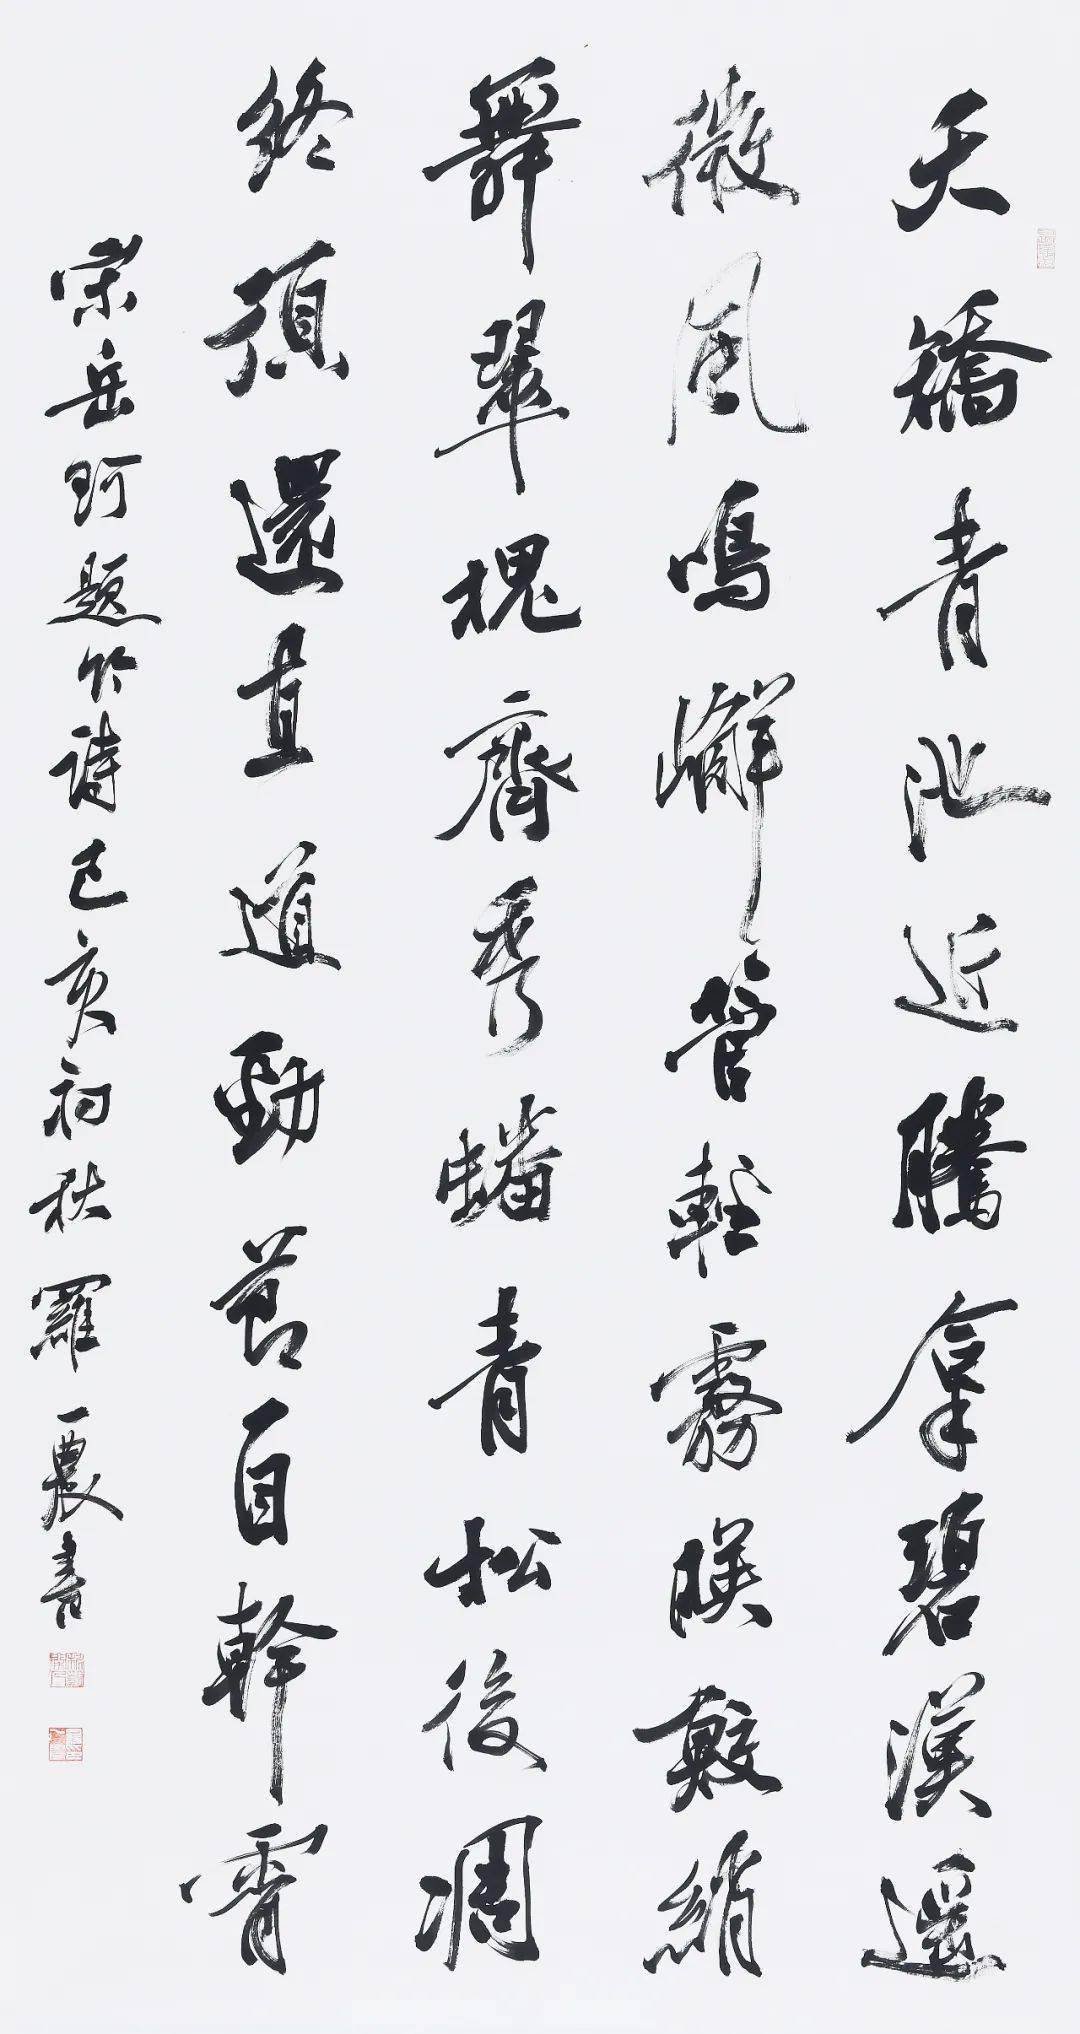 夭矯青池近騰拿碧漢遥
微風鳴嶰管輕霧暎鮫綃
舞翠槐齊秀蟠青松後凋
終須還直道勁節自幹霄
宋岳珂題竹詩己亥初秋羅一農書